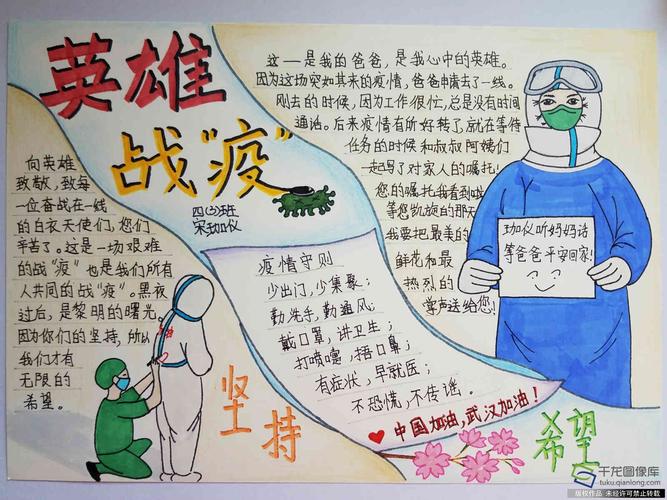 英雄
战“疫”
四(3)班
宋珈仪
向英雄
致敬，致每
一位奋战在一线
的白衣天使们，您们
辛苦了。这是一场艰难
的战“疫”也是我们所有
人共同的战“疫”。黑夜
过后，是黎明的曙光。
因为你们的坚持，所以
我们才有
无限的
希望。
坚持
这——是我的爸爸，是我心中的英雄。
因为这场突如其来的疫情，爸爸申请去了一线。
刚去的时候，因为工作很忙，总是没有时间
通话。后来疫情有所好转了，就在等待
任务的时候和叔叔阿姨们
一起写了对家人的嘱托！
您的嘱托我看到啦
等您凯旋的那天
我要把最美的
鲜花和最
热烈的
掌声送给您！
珈仪听妈妈话
等爸爸平安回家！
疫情守则
少出门，少集聚；
勤洗手，勤通风；
戴口罩，讲卫生；
打喷嚏，捂口鼻；
有症状，早就医；
不恐慌，不传谣。
中国加油，武汉加油！
希望
千龙图像库
tuku.qianlong.com
版权作品 未经许可禁止转载